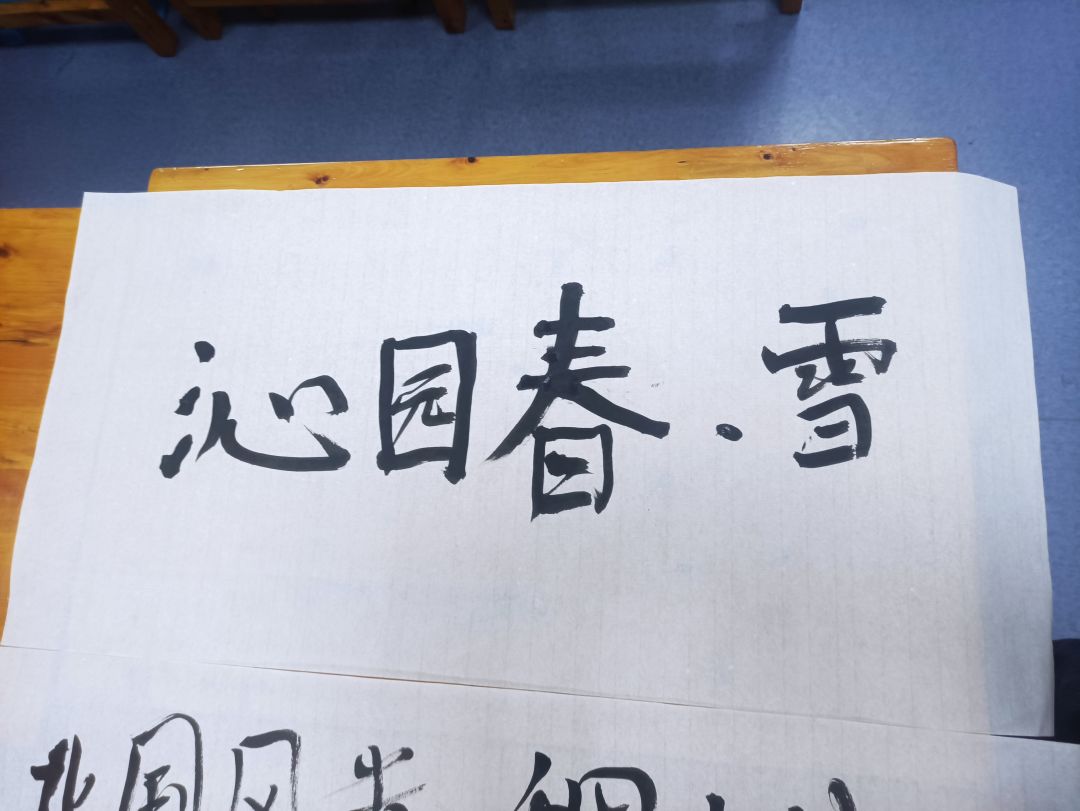 沁园春.雪
北国风光